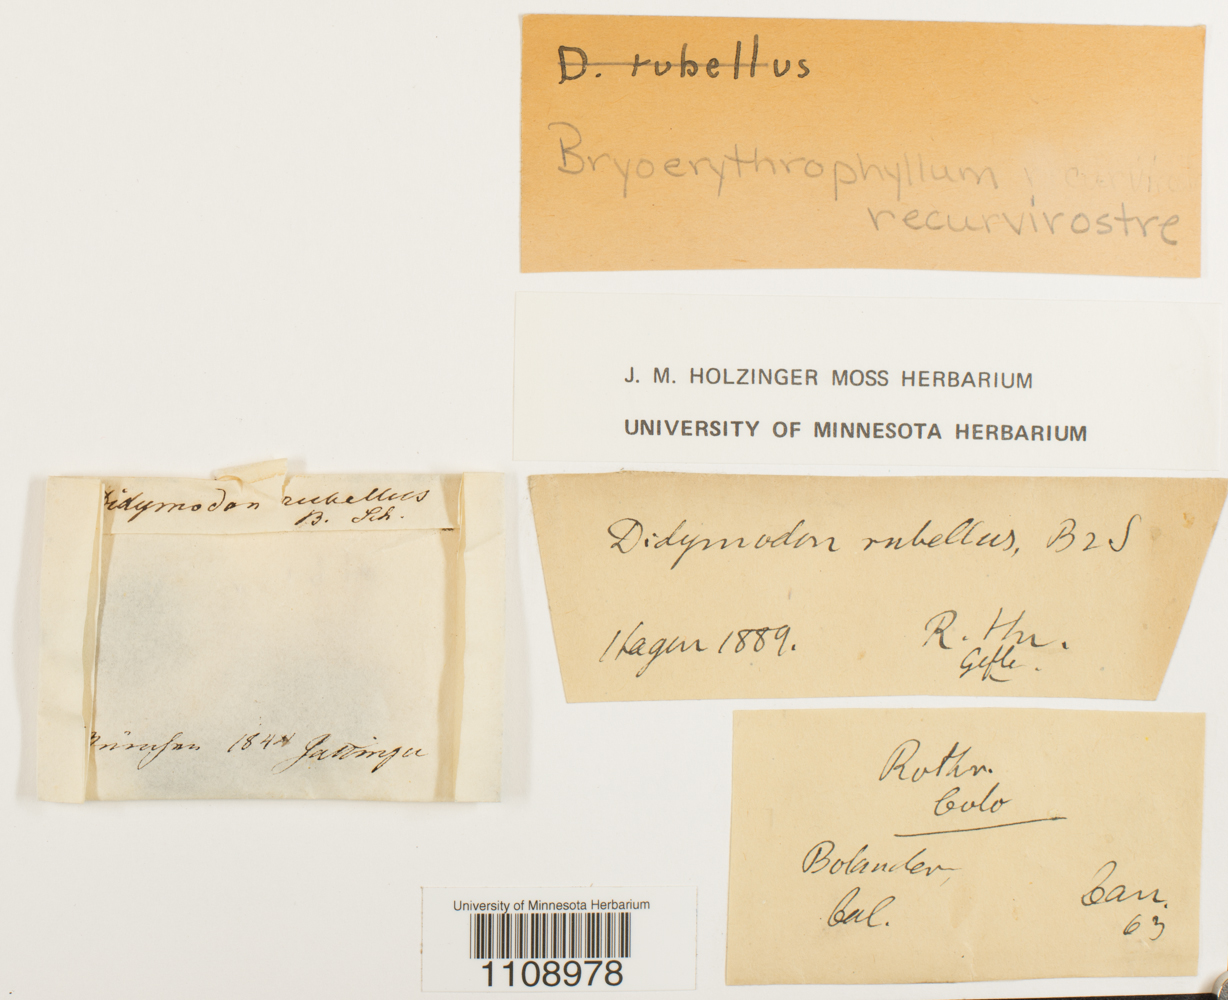 D. rubellus
Bryoerythrophyllum
recurvirostre
J. M. HOLZINGER MOSS HERBARIUM
UNIVERSITY OF MINNESOTA HERBARIUM
Didymodon rubellus
B. Sch.
München 184 Gattinger
Didymodon rubellus, B & S
Hagen 1889. R.
Gefle.
Rothr.
Colo
Bolander,
Cal.
Can.
63
University of Minnesota Herbarium
1108978